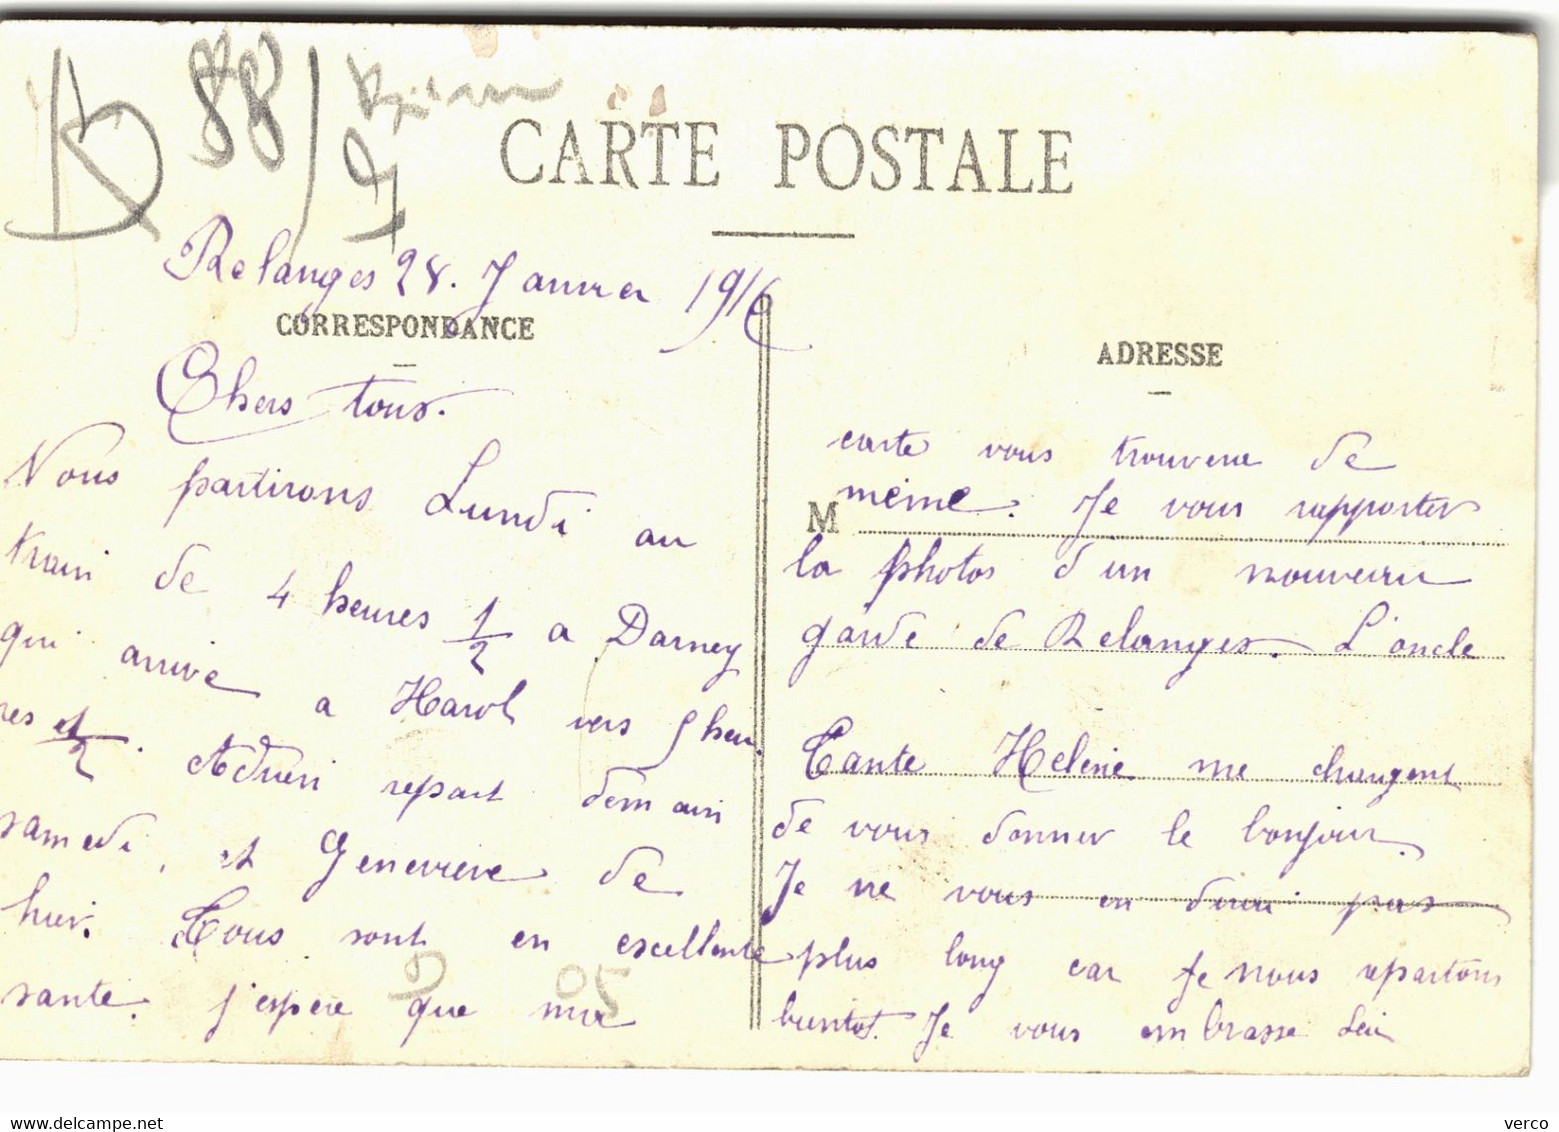 88
CARTE POSTALE
Relanges 28. Janvier 1916
CORRESPONDANCE
Chers tous.
Nous partirons Lundi au
train de 4 heures 1/2 a Darney
qui arrive a Harol vers 5 heu.
res et 1/2. Adrien repart demain
samedi, et Genevieve de
hier. Tous sont en excellente
sante. j'espère que ma
ADRESSE
carte vous trouvera de
même. Je vous rapporter
M
la photos d'un nouveau
garde de Relanges. L'oncle
Tante Helène me chargent
de vous donner le bonjour.
Je ne vous en dirai pas
plus long car je nous repartons
bientot. Je vous embrasse
D 05
www.delcampe.net
verco